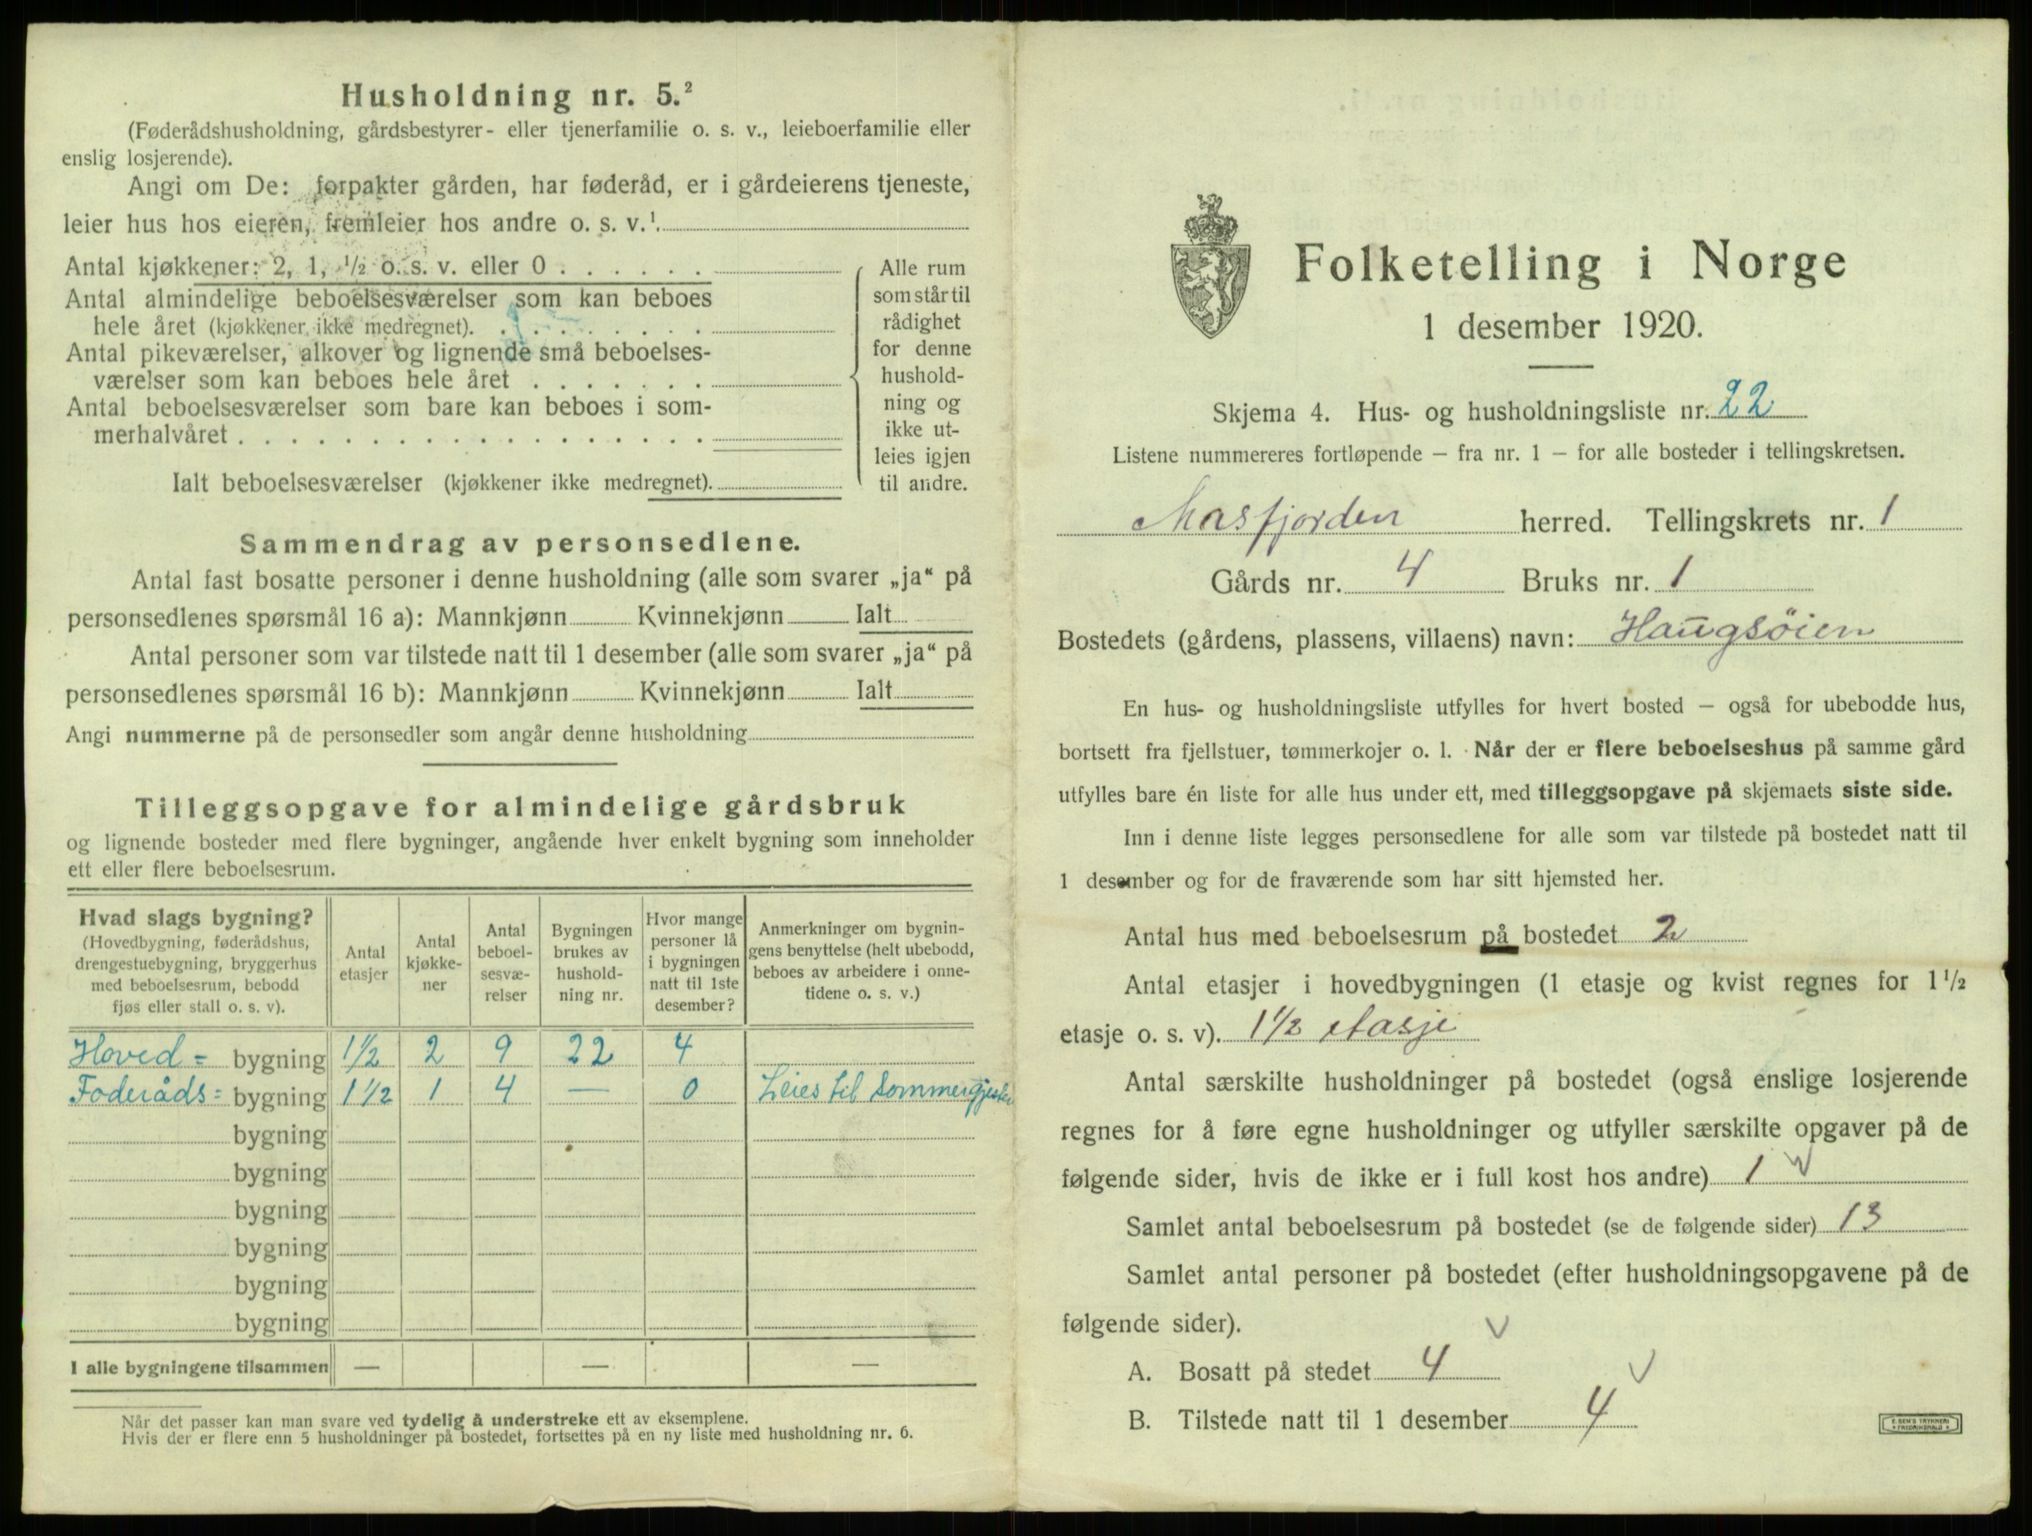 Husholdning nr. 5.²
(Føderådshusholdning, gårdsbestyrer- eller tjenerfamilie o. s. v., leieboerfamilie eller
enslig losjerende).
Angi om De: forpakter gården, har føderåd, er i gårdeierens tjeneste,
leier hus hos eieren, fremleier hos andre o. s. v.¹
Antal kjøkkener: 2, 1, ½ o. s. v. eller 0 . . . . . .
Antal almindelige beboelsesværelser som kan beboes
hele året (kjøkkener ikke medregnet). . . . . . . . .
Antal pikeværelser, alkover og lignende små beboelses-
værelser som kan beboes hele året . . . . . . .
Antal beboelsesværelser som bare kan beboes i som-
merhalvåret . . . . . . . . . . . . . . . . . .
Ialt beboelsesværelser (kjøkkener ikke medregnet).
Alle rum
som står til
rådighet
for denne
hushold-
ning og
ikke ut-
leies igjen
til andre.
Sammendrag av personsedlene.
Antal fast bosatte personer i denne husholdning (alle som svarer „ja“ på
personsedlenes spørsmål 16 a): Mannkjønn Kvinnekjønn Ialt
Antal personer som var tilstede natt til 1 desember (alle som svarer „ja“ på
personsedlenes spørsmål 16 b): Mannkjønn Kvinnekjønn Ialt
Angi nummerne på de personsedler som angår denne husholdning
Tilleggsopgave for almindelige gårdsbruk
og lignende bosteder med flere bygninger, angående hver enkelt bygning som inneholder
ett eller flere beboelsesrum.
Hvad slags bygning?
(Hovedbygning, føderådshus,
drengestuebygning, bryggerhus
med beboelsesrum, bebodd
fjøs eller stall o. s. v).
Antal
etasjer
Antal
kjøkke-
ner
Antal
beboel-
sesvæ-
relser
Bygningen
brukes av
hushold-
ning nr.
Hvor mange
personer lå
i bygningen
natt til 1ste
desember?
Anmerkninger om bygnin-
gens benyttelse (helt ubebodd,
beboes av arbeidere i onne-
tidene o. s. v.)
Hoved= bygning 1½ 2 9 22 4
Foderåds= bygning 1½ 1 4 — 0 Leies til Sommergjester
bygning
bygning
bygning
bygning
bygning
bygning
I alle bygningene tilsammen — — —
Når det passer kan man svare ved tydelig å understreke ett av eksemplene.
Hvis der er flere enn 5 husholdninger på bostedet, fortsettes på en ny liste med husholdning nr. 6.
Folketelling i Norge
1 desember 1920.
Skjema 4. Hus- og husholdningsliste nr. 22
Listene nummereres fortløpende – fra nr. 1 – for alle bosteder i tellingskretsen.
Masfjorden herred. Tellingskrets nr. 1
Gårds nr. 4 Bruks nr. 1
Bostedets (gårdens, plassens, villaens) navn: Haugsøien
En hus- og husholdningsliste utfylles for hvert bosted – også for ubebodde hus,
bortsett fra fjellstuer, tømmerkojer o. l. Når der er flere beboelseshus på samme gård
utfylles bare én liste for alle hus under ett, med tilleggsopgave på skjemaets siste side.
Inn i denne liste legges personsedlene for alle som var tilstede på bostedet natt til
1 desember og for de fraværende som har sitt hjemsted her.
Antal hus med beboelsesrum på bostedet 2
Antal etasjer i hovedbygningen (1 etasje og kvist regnes for 1½
etasje o. s. v). 1½ etasje
Antal særskilte husholdninger på bostedet (også enslige losjerende
regnes for å føre egne husholdninger og utfyller særskilte opgaver på de
følgende sider, hvis de ikke er i full kost hos andre) 1
Samlet antal beboelsesrum på bostedet (se de følgende sider) 13
Samlet antal personer på bostedet (efter husholdningsopgavene på de
følgende sider).
A. Bosatt på stedet 4
B. Tilstede natt til 1 desember 4